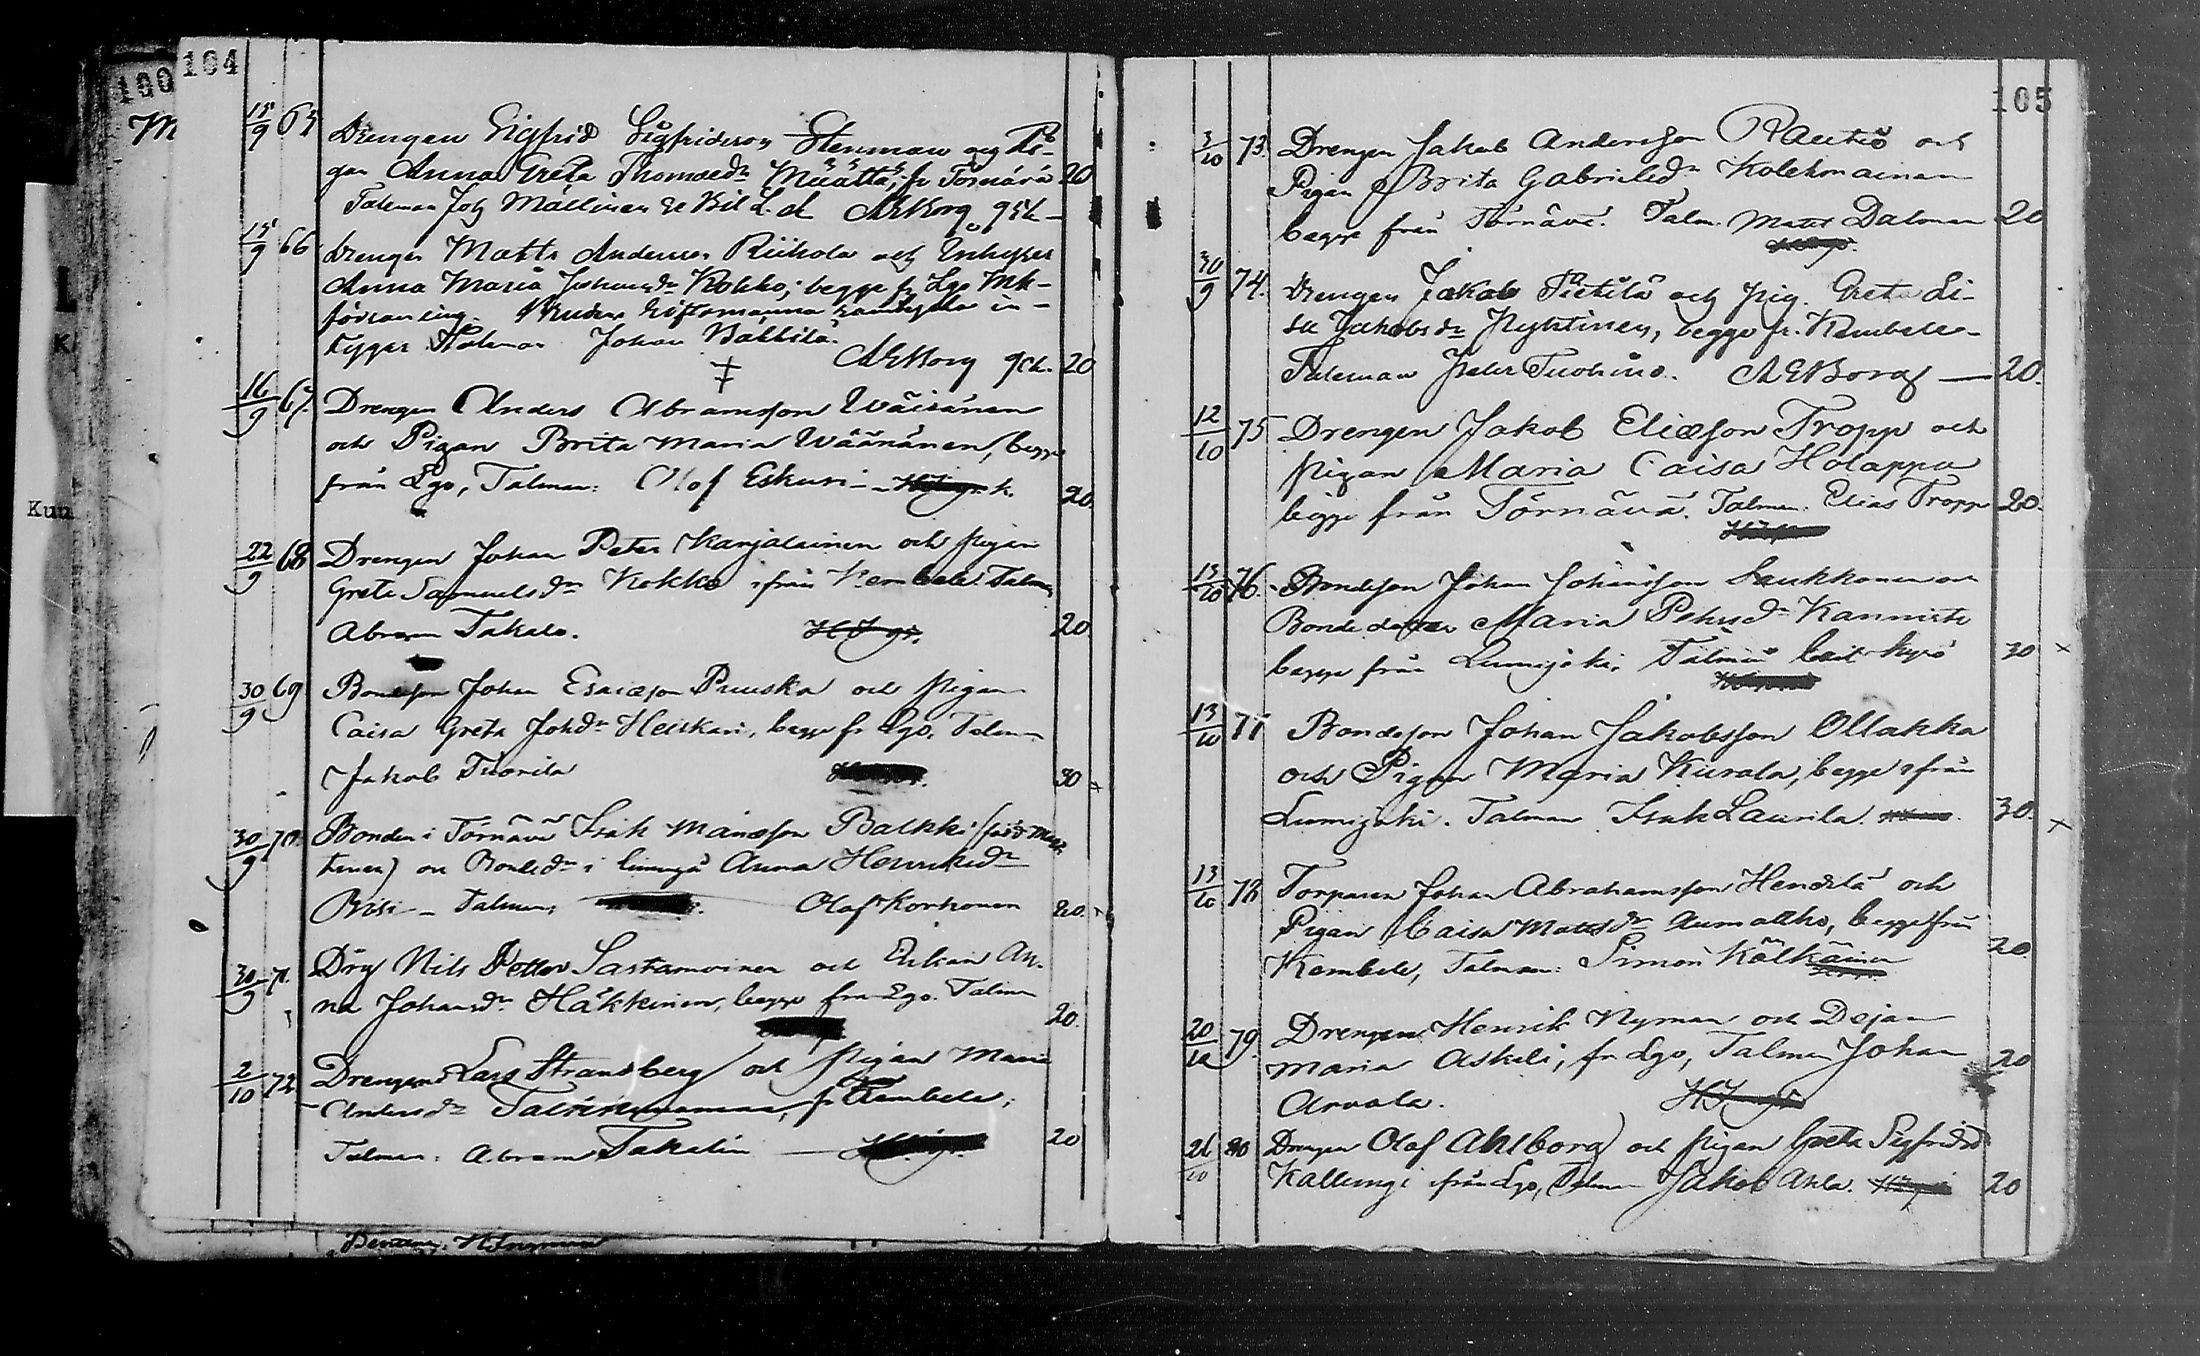 100
M
Kuu
104
15/9 65 Drengen Sigfrid Sigfridsson Stenman och Pi-
gan Anna Greta Thomasdr Määttä, fr Tornävä 20
Taleman Joh Mällinen
15/9 66 Drengen Matts Andersson Riihola och Enkepig
Anna Maria Johansdr Kokko; begge fr Lgo
Giftomanna samtycke in-
tygger Taleman Johan
AEBorg 20
16/9 67. Drengen Anders Abramsson Wäisänen
och Pigan Brita Maria Wäänänen, begge
från Lgo, Talman: Olof Eskuri 20.
22/9 68 Drengen Johan Peter Karjalainen och pigan
Greta Samuelsdr Kokko ifrån Kembele Talm
Abram Takalo. 20
30/9 69 Bondeson Johan Esaiæson Puuska och pigan
Caisa Greta Johdr Heiskari, begge fr Lgo, Talman
Jakob Tuorila 30
30/9 70. Bonden i Tornävä Isak Månsson Balkki (född
tinen) och Bondedr i Limingo Anna Henriksdr
Talman, Olaf Korhonen 20.
30/9 71. Drg Nils Petter Sastamoinen och Enkan An-
na Johansdr Häkkinen, begge från Lgo. Talman 20.
2/10 72 Drengen Lars Strandberg och pigan Maria
Andersdr fr Kembele;
Talman: Abram Takalin 20
105
3/10 73. Drengen Jakob Andersson Rautio och
Pigan Brita Gabrielsdr Kolehmainen
begge från Tornävä. Talm. Matts Dalman 20
30/9 74. Drengen Jakob Pietilä och pig. Greta Li-
sa Jakobsdr Hyhtinen, begge fr. Kembele
Taleman Peter Tuohino. AEBorg 20.
12/10 75 Drengen Jakob Eliæson Tropp och
pigan Maria Caisa Holappa
begge från Tornävä. Talman. Elias Tropp 20.
13/10 76. Bondeson Johan Johansson Laukkanen och
Bondedotter Maria Petersdr Kanniste
begge från Lumijoki. Talman 30 x
13/10 77 Bondeson Johan Jakobsson Ollakka
och Pigan Maria Kurala, begge ifrån
Lumijoki. Talman Isak Laurila. 30. x
13/10 78 Torparen Johan Abrahamsson Hendilä och
Pigan Caisa Mattsdr Aumattho, begge från
Kembele, Talman: Simon Kälkäinen 20
20/10 79. Drengen Henrik Nyman och Dejan
Maria Askeli, fr Lgo, Talman Johan 20
Arvola.
26/10 80 Drengen Olof Ahlborg och pigan Greta Sigfridsd
Kallungi från Lgo, Talman Jakob Ahla. 20